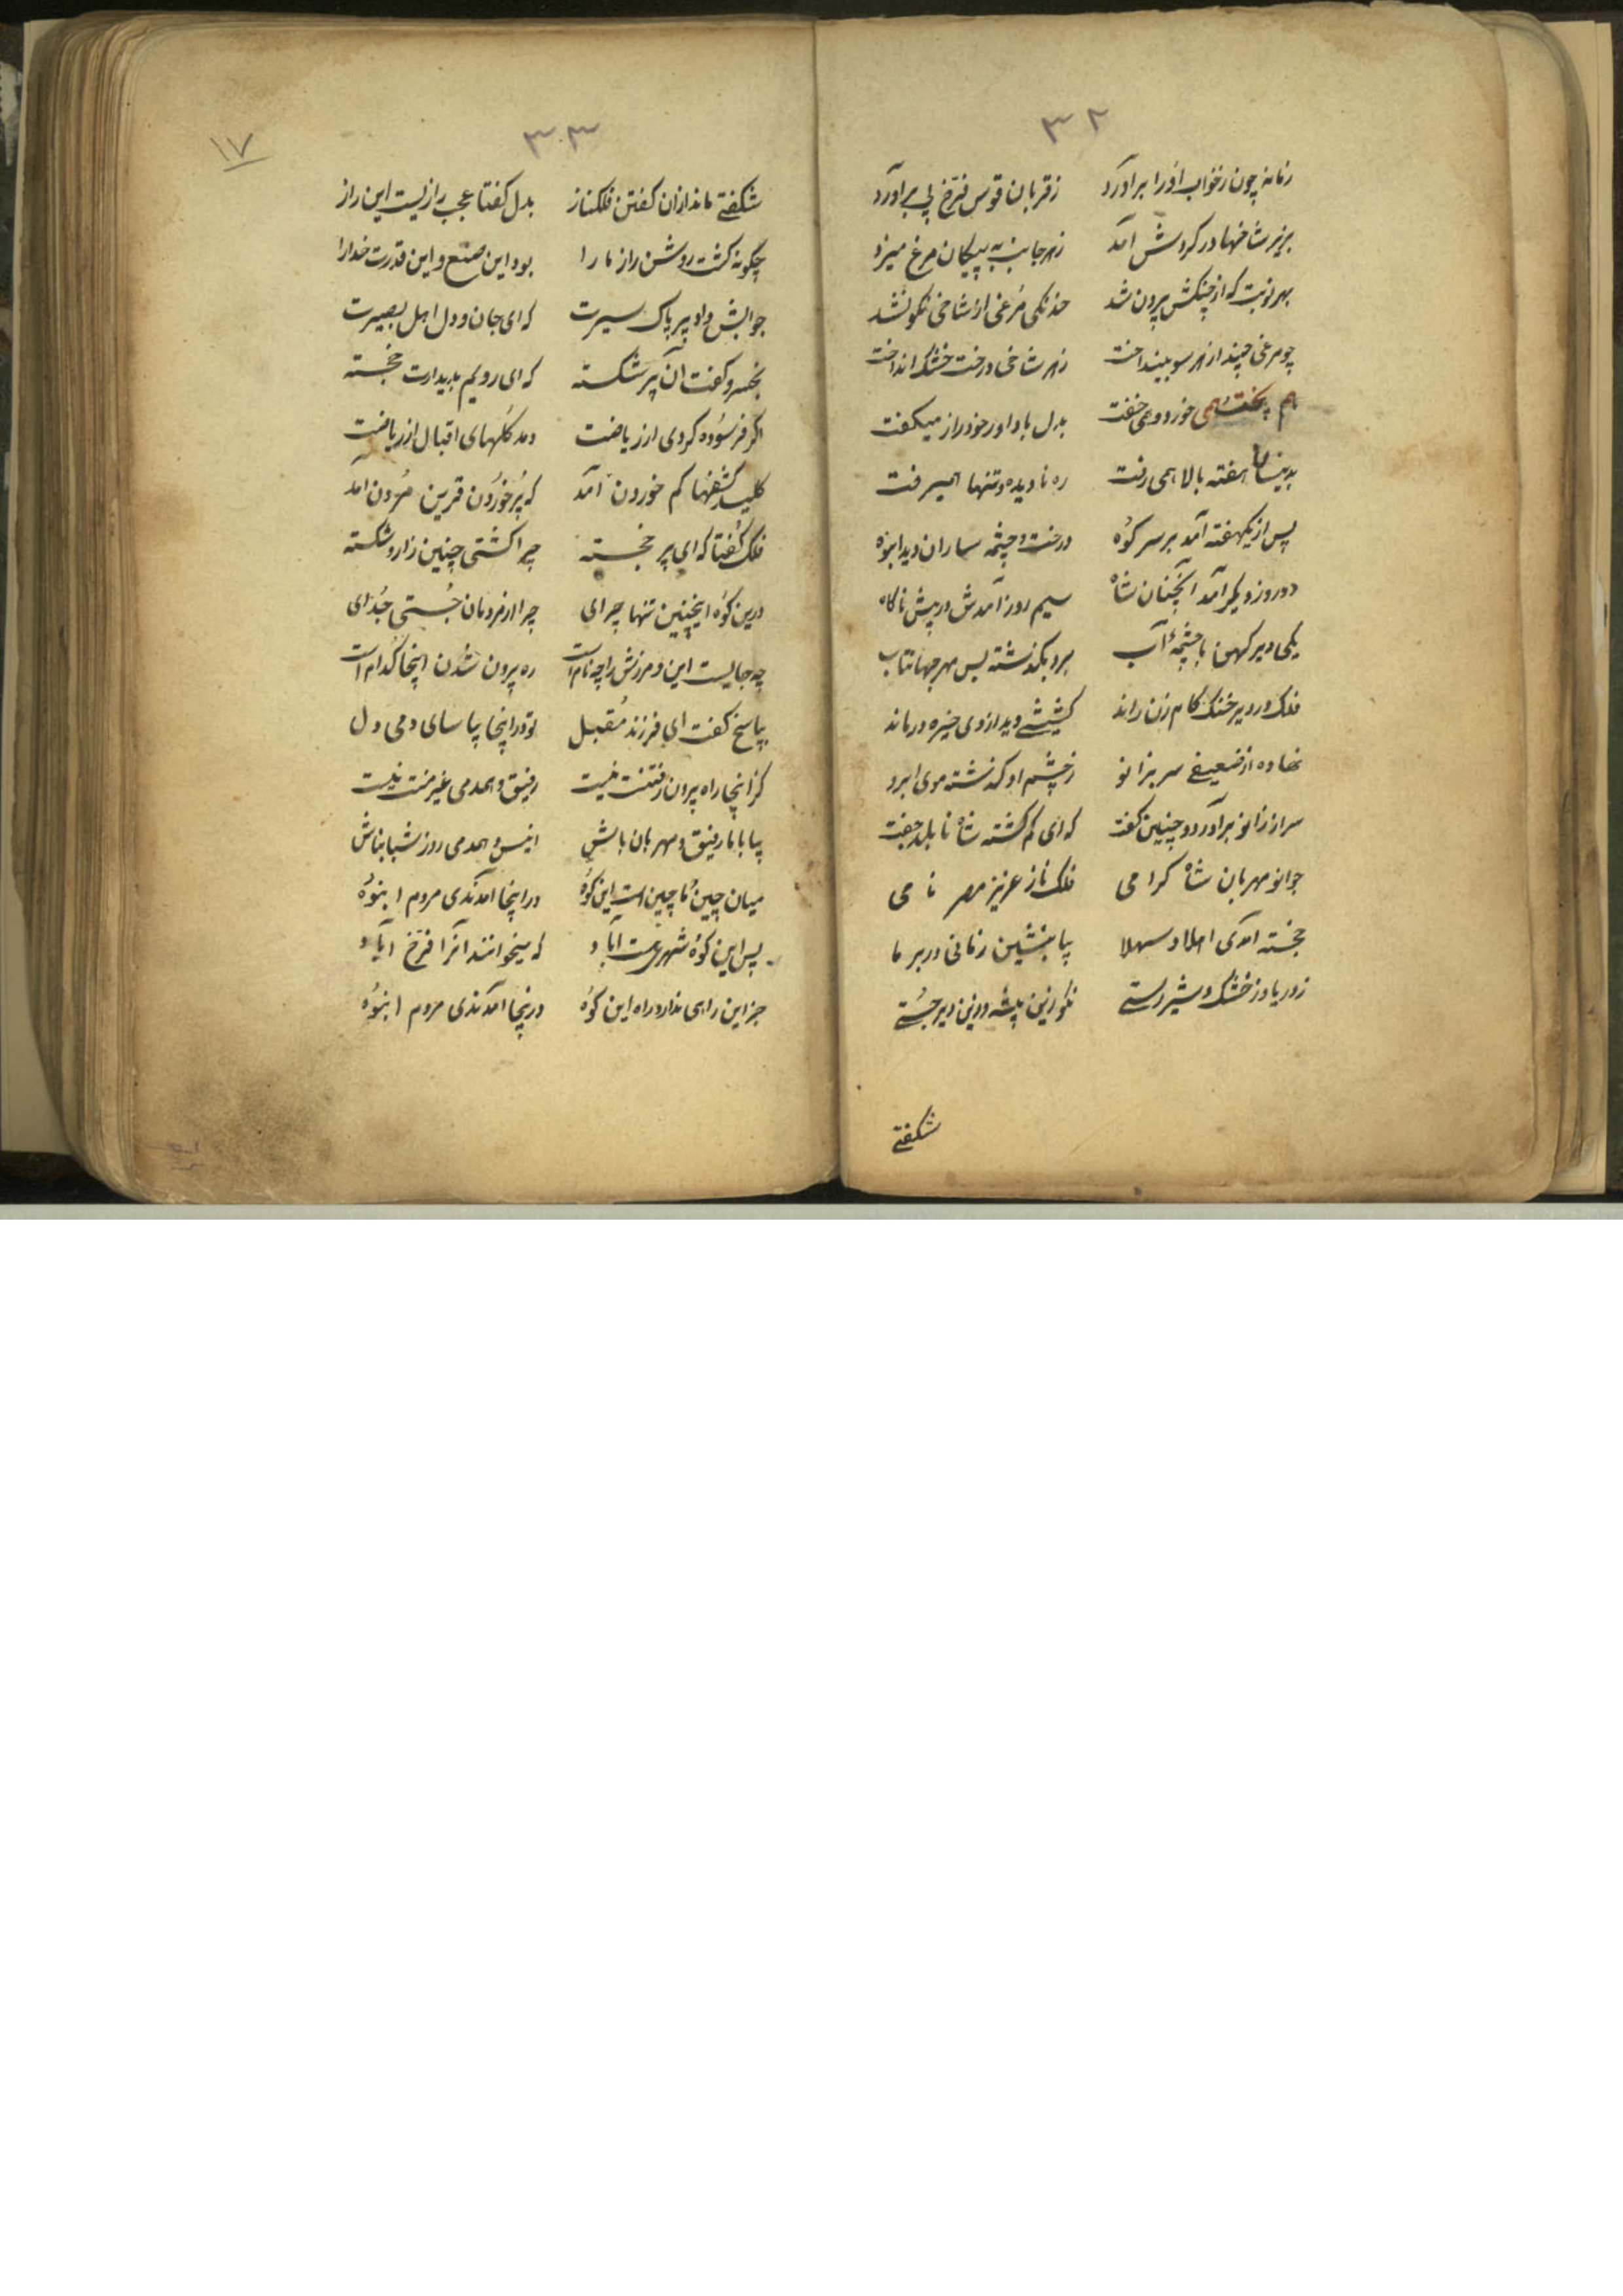 ۳۲
زمانه چون ز خواب او را برآورد ز قربان قوس قزح پی برآورد
بزیر شاخها در گردش آمد ز هر جانب به پیکان مرغ میزد
بهر نوبت که از چنگش برون شد خدنگی مرغی از شاخی نگون شد
چو مرغی چند از هر سو بینداخت ز هر شاخی درخت خشک انداخت
بهم پخت همی خورد و همی خفت بدل با داور خود راز میگفت
بدینسان هفته بالا همی رفت ره نادیده و تنها همیرفت
پس از یکهفته آمد بر سر کوه درخت و چشمه ساران دید انبوه
دو روز دیگر آمد آنچنان شاه سیم روز آمدش در پیش ناگاه
یکی دیر کهن با چشمهٔ آب برو بگذشته بس مهر جهانتاب
فلک در دیر خنگ گام زن راند کشیشی دید از وی خیره درماند
نهاده از ضعیفی سر بزانو ز چشم او گذشته موی ابرو
سر از زانو برآورد و چنین گفت که ای گم گشته شاه نابلد جفت
جوان مهربان شاه گرامی فلک ناز عزیز مصر نامی
خجسته آمدی اهلا و سهلا بیا بنشین زمانی در بر ما
ز دریا و ز خشک و شیر رستی نکو زین بیشه در این دیر جستی
شکفتی
۳۳
۱۷
شکفتی ماند ازان گفتن فلکناز بدل گفتا عجب رازیست این راز
چگونه گشت روشن راز ما را بود این صنع و این قدرت خدا را
جوابش داد پیر پاک سیرت که ای جان و دل اهل بصیرت
بخسرو گفت آن پیر شکسته که ای رویم بدیدارت خجسته
اگر فرسوده گردی از ریاضت دمد گلهای اقبال از ریاضت
کلید کشفها کم خوردن آمد که پر خوردن قرین مردن آمد
فلک گفتا که ای پیر خجسته چرا گشتی چنین زار و شکسته
درین کوه اینچنین تنها چرای چرا از مردمان جستی جدای
چه جایست این و مرزش را چه نام است ره بیرون شدن اینجا کدام است
بپاسخ گفت ای فرزند مقبل تو در اینجا بیاسای دمی دل
کز اینجا راه بیرون رفتنت نیست رفیق و همدمی غیر منت نیست
بیا با ما رفیق و مهربان باش انیس و همدمی روز شبان باش
میان چین و ماچین است این کوه در اینجا آمدندی مردم انبوه
پس این کوه شهری هست آباد که میخوانند آنرا فرخ آباد
جز این راهی ندارد راه این کوه درینجا آمدندی مردم انبوه